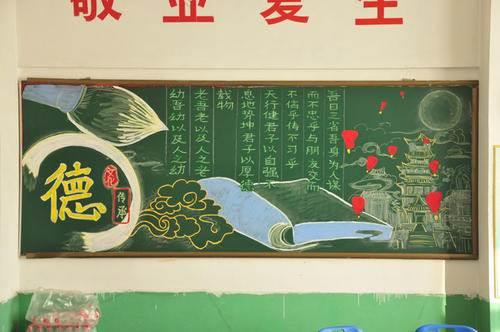 敬业爱生
吾日三省吾身为人谋
而不忠乎与朋友交而
不信乎传不习乎
天行健君子以自强不
息地势坤君子以厚德
载物
老吾老以及人之老
幼吾幼以及人之幼
德
文化
传承